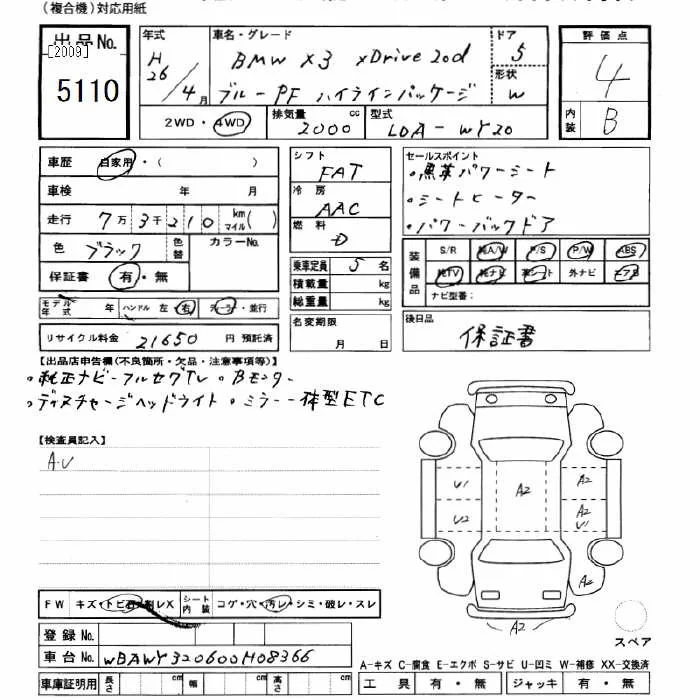 (複合機)対応用紙
出品No.
[2009]
5110
年式
H26/4月
車名・グレード
BMW X3 xDrive20d
ブルーPF ハイラインパッケージ
ドア
5
形状
W
評価点
4
内装
B
2WD・4WD
排気量
2000
cc
型式
LDA-WY20
車歴
自家用・( )
車検 年 月
走行 7万3千210 km マイル( )
色 ブラック
色替
カラーNo.
保証書 有・無
モデル年式 年
ハンドル 左・右
ディーラー・並行
リサイクル料金 21650 円 預託済
シフト
FAT
冷房
AAC
燃料
D
乗車定員 5 名
積載量 kg
総重量 kg
名変期限
月 日
セールスポイント
・黒革パワーシート
・シートヒーター
・パワーバックドア
装備品
S/R 純A/W P/S P/W ABS
純TV 純ナビ 革シート 外ナビ エアB
ナビ型番:
後日品
保証書
【出品店申告欄(不良箇所・欠品・注意事項等)】
・純正ナビ-フルセグTV ・Bモニター
・ディスチャージヘッドライト ・ミラー一体型ETC
【検査員記入】
A・U
U1
U2
A2
A2
A2
U1
A2
A2
スペア
FW キズ・トビ石・割レX
シート内装 コゲ・穴・汚レ・シミ・破レ・スレ
登録No.
車台No. WBAWY320600H08366
車庫証明用 長さ cm 幅 cm 高さ cm
A-キズ C-腐食 E-エクボ S-サビ U-凹ミ W-補修 XX-交換済
工具 有・無 ジャッキ 有・無